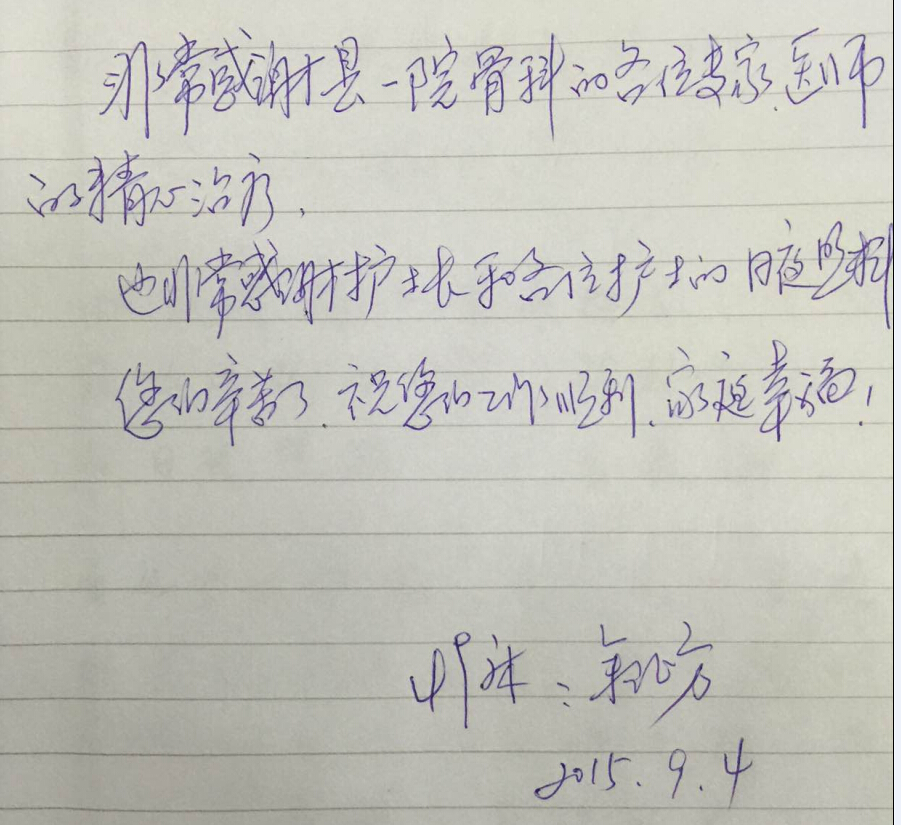 非常感谢县一院骨科的各位专家.医师
的精心治疗,
也非常感谢护士长和各位护士的日夜照料
您们辛苦了.祝您们工作顺利.家庭幸福!
床:
2015.9.4